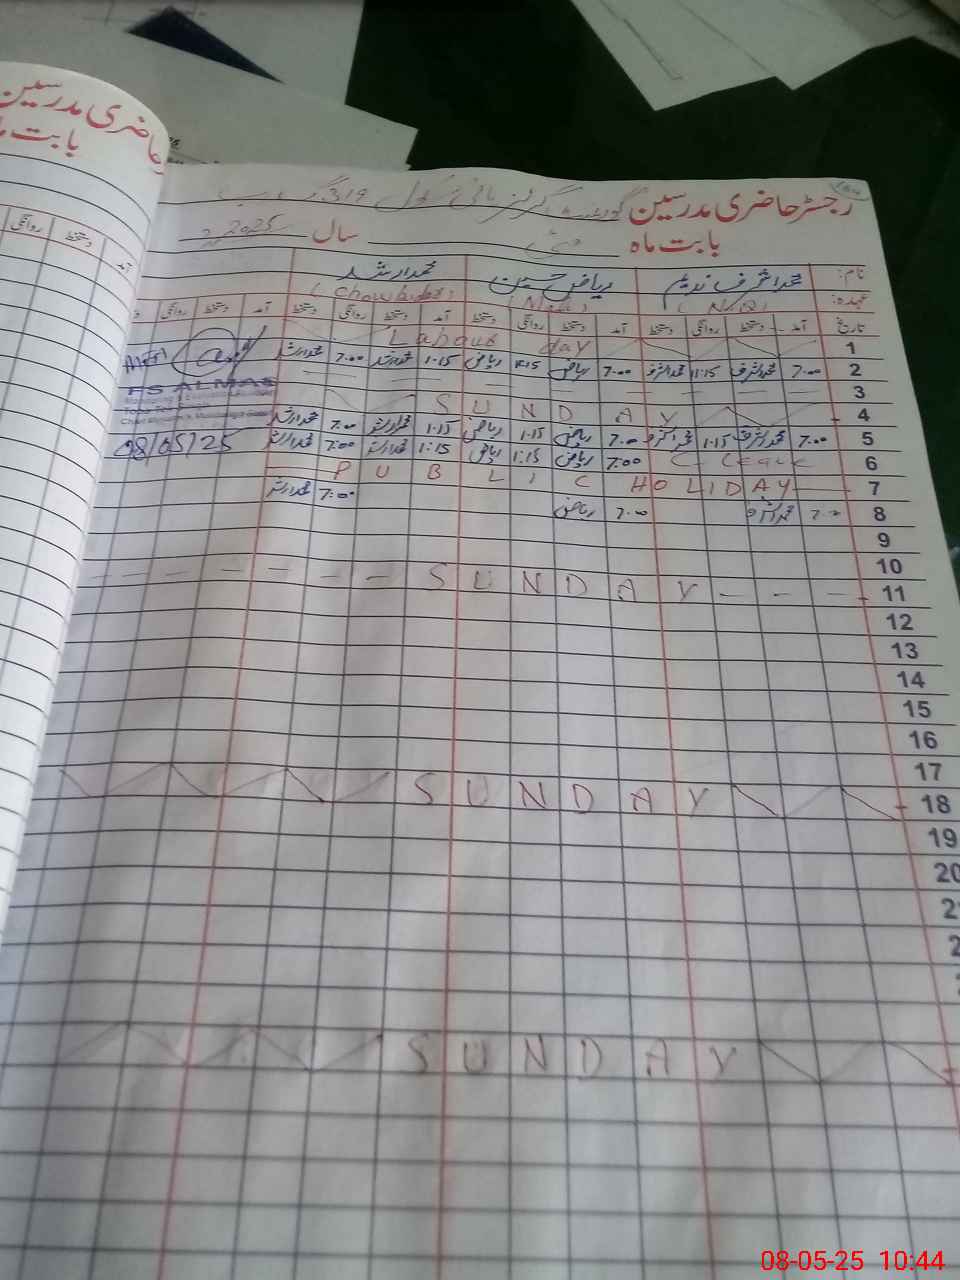 حاضری مدرسین
بابت ما
روانگی دستخط آمد
رجسٹر حاضری مدرسین گورنمنٹ گرلز ہائی سکول 319 گ ب
بابت ماہ مئی سال 2025
نام: محمد اشرف ندیم ریاض حسین محمد ارشد
عہدہ: (N/Q) (Chowkidar)
تاریخ آمد دستخط روانگی دستخط آمد دستخط روانگی دستخط آمد دستخط روانگی دستخط آمد دستخط روانگی
1 Labour day
2 7:00 محمد اشرف 11:15 محمد اشرف 7:00 ریاض 11:15 ریاض 1:15 محمد ارشد 7:00 محمد ارشد
3
4 SUNDAY
5 7:00 محمد اشرف 1:15 7:00 ریاض 1:15 ریاض 1:15 محمد ارشد 7:00 محمد ارشد
6 C-Leave 7:00 ریاض 1:15 ریاض 1:15 محمد ارشد 7:00 محمد ارشد
7 PUBLIC HOLIDAY
8 7:00 7:00 ریاض 7:00 محمد ارشد
9
10
11 SUNDAY
12
13
14
15
16
17
18 SUNDAY
19
20
SUNDAY
ALMAS
08/05/25
08-05-25 10:44